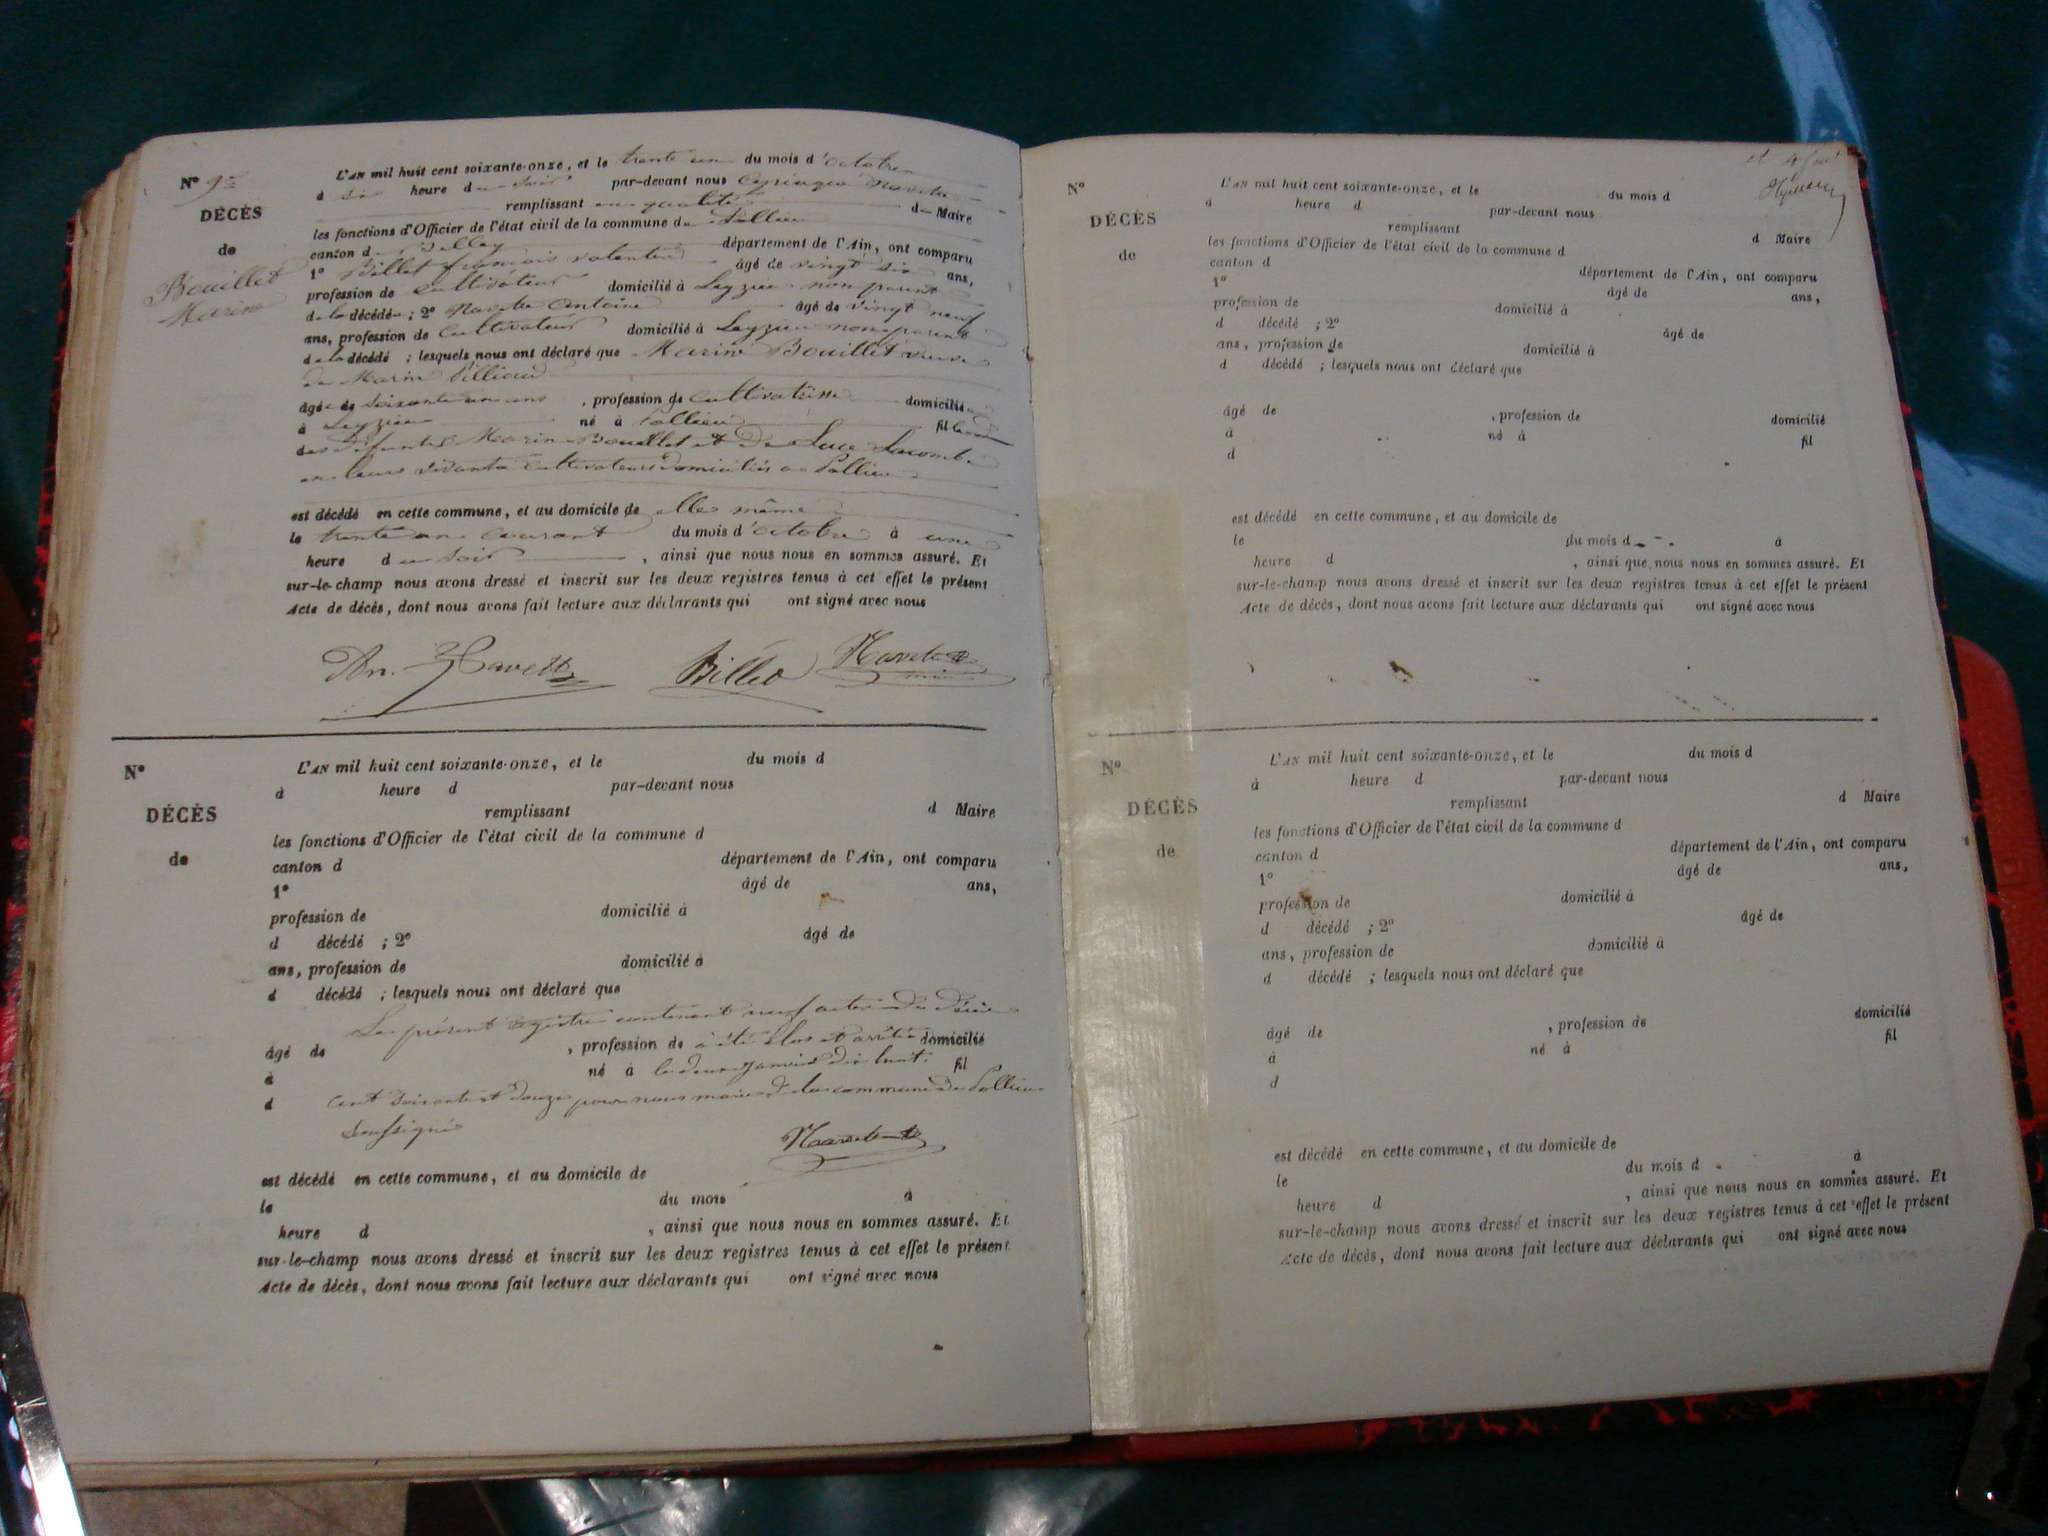 N° 9
DÉCÈS
de
Bouillet
Marie
L'AN mil huit cent soixante-onze, et le trente un du mois d'octobre
à six heure du soir par-devant nous Navette
remplissant en qualité de Maire
les fonctions d'Officier de l'état civil de la commune de Pollieu
canton de Belley département de l'Ain, ont comparu
1° Billet françois âgé de vingt six ans,
profession de cultivateur domicilié à Leyzieu non parent
de la décédée ; 2° Navette Antoine âgé de vingt neuf
ans, profession de Cultivateur domicilié à Leyzieu non parent
de la décédé ; lesquels nous ont déclaré que Marie Bouillet veuve
de Marin
âgée de soixante un ans , profession de cultivatrice domicilié
à Leyzieu né à Pollieu fil
des défunts Marin Bouillet et de Luce Lacombe
en leurs vivants cultivateurs domiciliés à Pollieu
est décédé en cette commune, et au domicile de elle même
le trente un courant du mois d'octobre à une
heure du soir , ainsi que nous nous en sommes assuré. Et
sur-le-champ nous avons dressé et inscrit sur les deux registres tenus à cet effet le présent
Acte de décès, dont nous avons fait lecture aux déclarants qui ont signé avec nous
An. Navette Billet Navette
N°
DÉCÈS
de
L'AN mil huit cent soixante-onze, et le du mois d
à heure d par-devant nous
remplissant d Maire
les fonctions d'Officier de l'état civil de la commune d
canton d département de l'Ain, ont comparu
1° âgé de ans,
profession de domicilié à
d décédé ; 2° âgé de
ans, profession de domicilié à
d décédé ; lesquels nous ont déclaré que
Le présent registre contenant neuf actes de décès
âgé de , profession de a été clos et arrêté domicilié
à né à le deux janvier dix huit fil
d cent soixante et douze par nous maire de la commune de Pollieu
soussigné
Navette
est décédé en cette commune, et au domicile de
le du mois à
heure d , ainsi que nous nous en sommes assuré. Et
sur-le-champ nous avons dressé et inscrit sur les deux registres tenus à cet effet le présent
Acte de décès, dont nous avons fait lecture aux déclarants qui ont signé avec nous
N°
DÉCÈS
de
L'AN mil huit cent soixante-onze, et le du mois d
à heure d par-devant nous
remplissant d Maire
les fonctions d'Officier de l'état civil de la commune d
canton d département de l'Ain, ont comparu
1° âgé de ans,
profession de domicilié à
d décédé ; 2° âgé de
ans, profession de domicilié à
d décédé ; lesquels nous ont déclaré que
âgé de , profession de domicilié
à né à fil
d
est décédé en cette commune, et au domicile de
le du mois d à
heure d , ainsi que nous nous en sommes assuré. Et
sur-le-champ nous avons dressé et inscrit sur les deux registres tenus à cet effet le présent
Acte de décès, dont nous avons fait lecture aux déclarants qui ont signé avec nous
N°
DÉCÈS
de
L'AN mil huit cent soixante-onze, et le du mois d
à heure d par-devant nous
remplissant d Maire
les fonctions d'Officier de l'état civil de la commune d
canton d département de l'Ain, ont comparu
1° âgé de ans,
profession de domicilié à
d décédé ; 2° âgé de
ans, profession de domicilié à
d décédé ; lesquels nous ont déclaré que
âgé de , profession de domicilié
à né à fil
d
est décédé en cette commune, et au domicile de
le du mois d à
heure d , ainsi que nous nous en sommes assuré. Et
sur-le-champ nous avons dressé et inscrit sur les deux registres tenus à cet effet le présent
Acte de décès, dont nous avons fait lecture aux déclarants qui ont signé avec nous